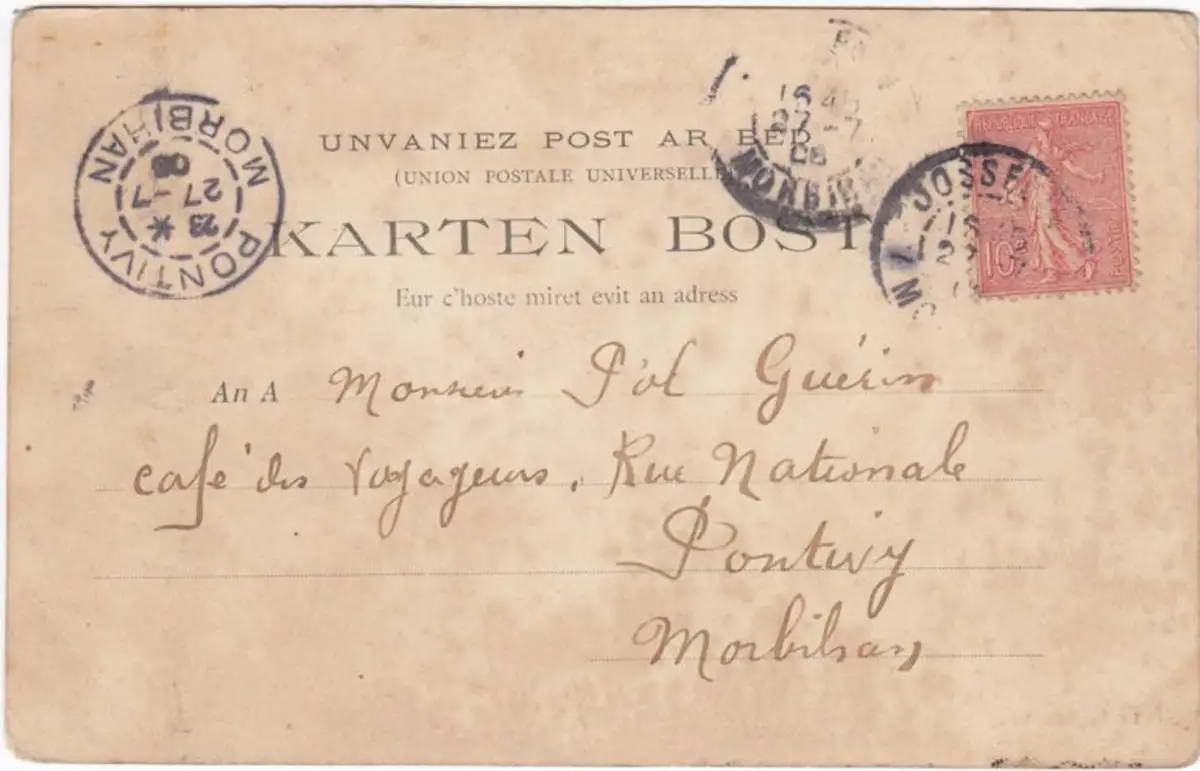 UNVANIEZ POST AR BED
(UNION POSTALE UNIVERSELLE
KARTEN BOST
Eur c'hoste miret evit an adress
REPUBLIQUE FRANÇAISE
10
POSTES
JOSSE
MORBIHAN
PONTIVY
23 *
27 -7
06
16
27 -7
06
MORBIH
An A Monsieur Pol Guérin
café des Voyageurs, Rue Nationale
Pontivy
Morbihan